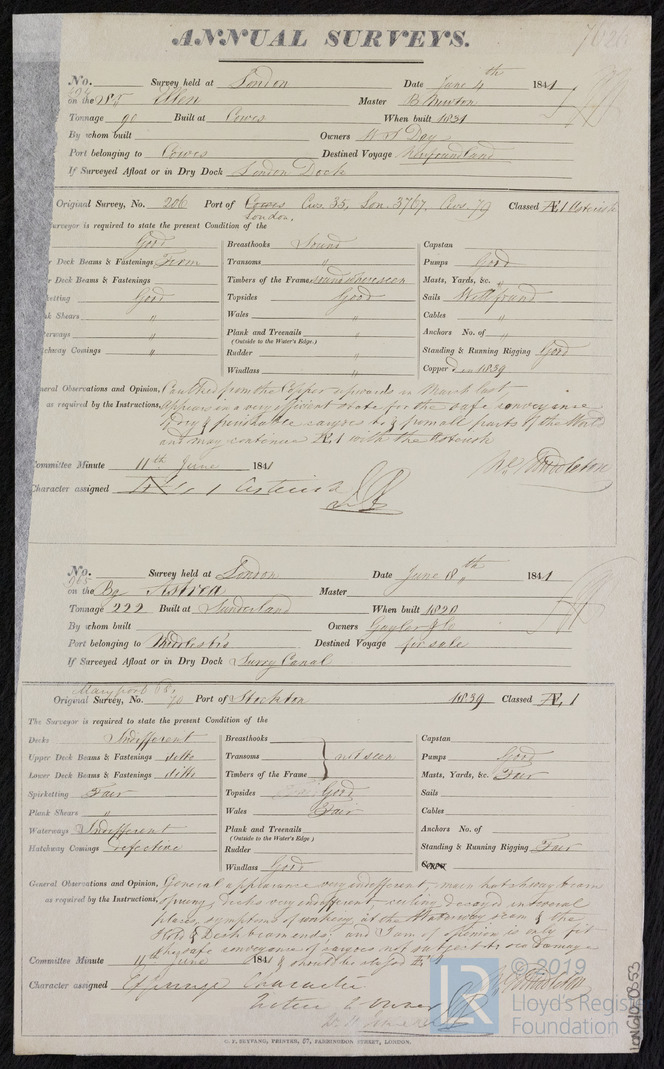 ANNUAL SURVEYS.
No. Survey held at London Date June 4th 1841
on the Ellen Master B Newton
Tonnage 90 Built at Cowes When built 1834
By whom built Owners Day
Port belonging to Cowes Destined Voyage Newfoundland
If Surveyed Afloat or in Dry Dock London Dock
Original Survey, No. 206 Port of Cowes Cws. 35, Lon. 3767, Cws. 79 Classed Æ 1 Asterisk
London.
urveyor is required to state the present Condition of the
Good Breasthooks Sound Capstan
r Deck Beams & Fastenings Transoms " Pumps Good
r Deck Beams & Fastenings Timbers of the Frame sound where seen Masts, Yards, &c. "
ketting Good Topsides Good Sails Well found
nk Shears " Wales " Cables "
terways " Plank and Treenails " Anchors No. of "
(Outside to the Water's Edge.)
tchway Comings " Rudder " Standing & Running Rigging Good
Windlass " Copper 1839
neral Observations and Opinion, Caulked from the Copper upwards in March last
as required by the Instructions, Appears in a very efficient state for the safe conveyance
of dry & perishable cargoes to & from all parts of the World
and may continue Æ 1 with the Asterisk
Committee Minute 11th June 1841
Character assigned 1 Asterisk
No. Survey held at London Date June 18th 1841
on the Bg Astrea Master
Tonnage 222 Built at Sunderland When built 1820
By whom built Owners Gayler & Co
Port belonging to Middlesbro Destined Voyage for sale
If Surveyed Afloat or in Dry Dock Surry Canal
Maryport 68,
Original Survey, No. 70 Port of Stockton 1839 Classed Æ, 1
The Surveyor is required to state the present Condition of the
Decks Indifferent Breasthooks Capstan
Upper Deck Beams & Fastenings ditto Transoms not seen Pumps Good
Lower Deck Beams & Fastenings ditto Timbers of the Frame Masts, Yards, &c. Fair
Spirketting Fair Topsides Good Sails
Plank Shears " Wales Fair Cables
Waterways Indifferent Plank and Treenails Anchors No. of
(Outside to the Water's Edge.)
Hatchway Comings defective Rudder Standing & Running Rigging Fair
Windlass Good
General Observations and Opinion, General appearance very indifferent, main hatchway beam
as required by the Instructions, sprung, decks very indifferent, ceiling decayed in several
places, symptoms of working at the Waterway seam & the
Hold & Deck beam ends; and I am of opinion is only fit
safe conveyance of cargoes not subject to sea damage
Committee Minute June 1841 & should be classed
Character assigned Expunge Character
Owner
© 2019
LR Lloyd's Register
Foundation
LON610-0353
C. F. SEYFANG, PRINTER, 57, FARRINGDON STREET, LONDON.